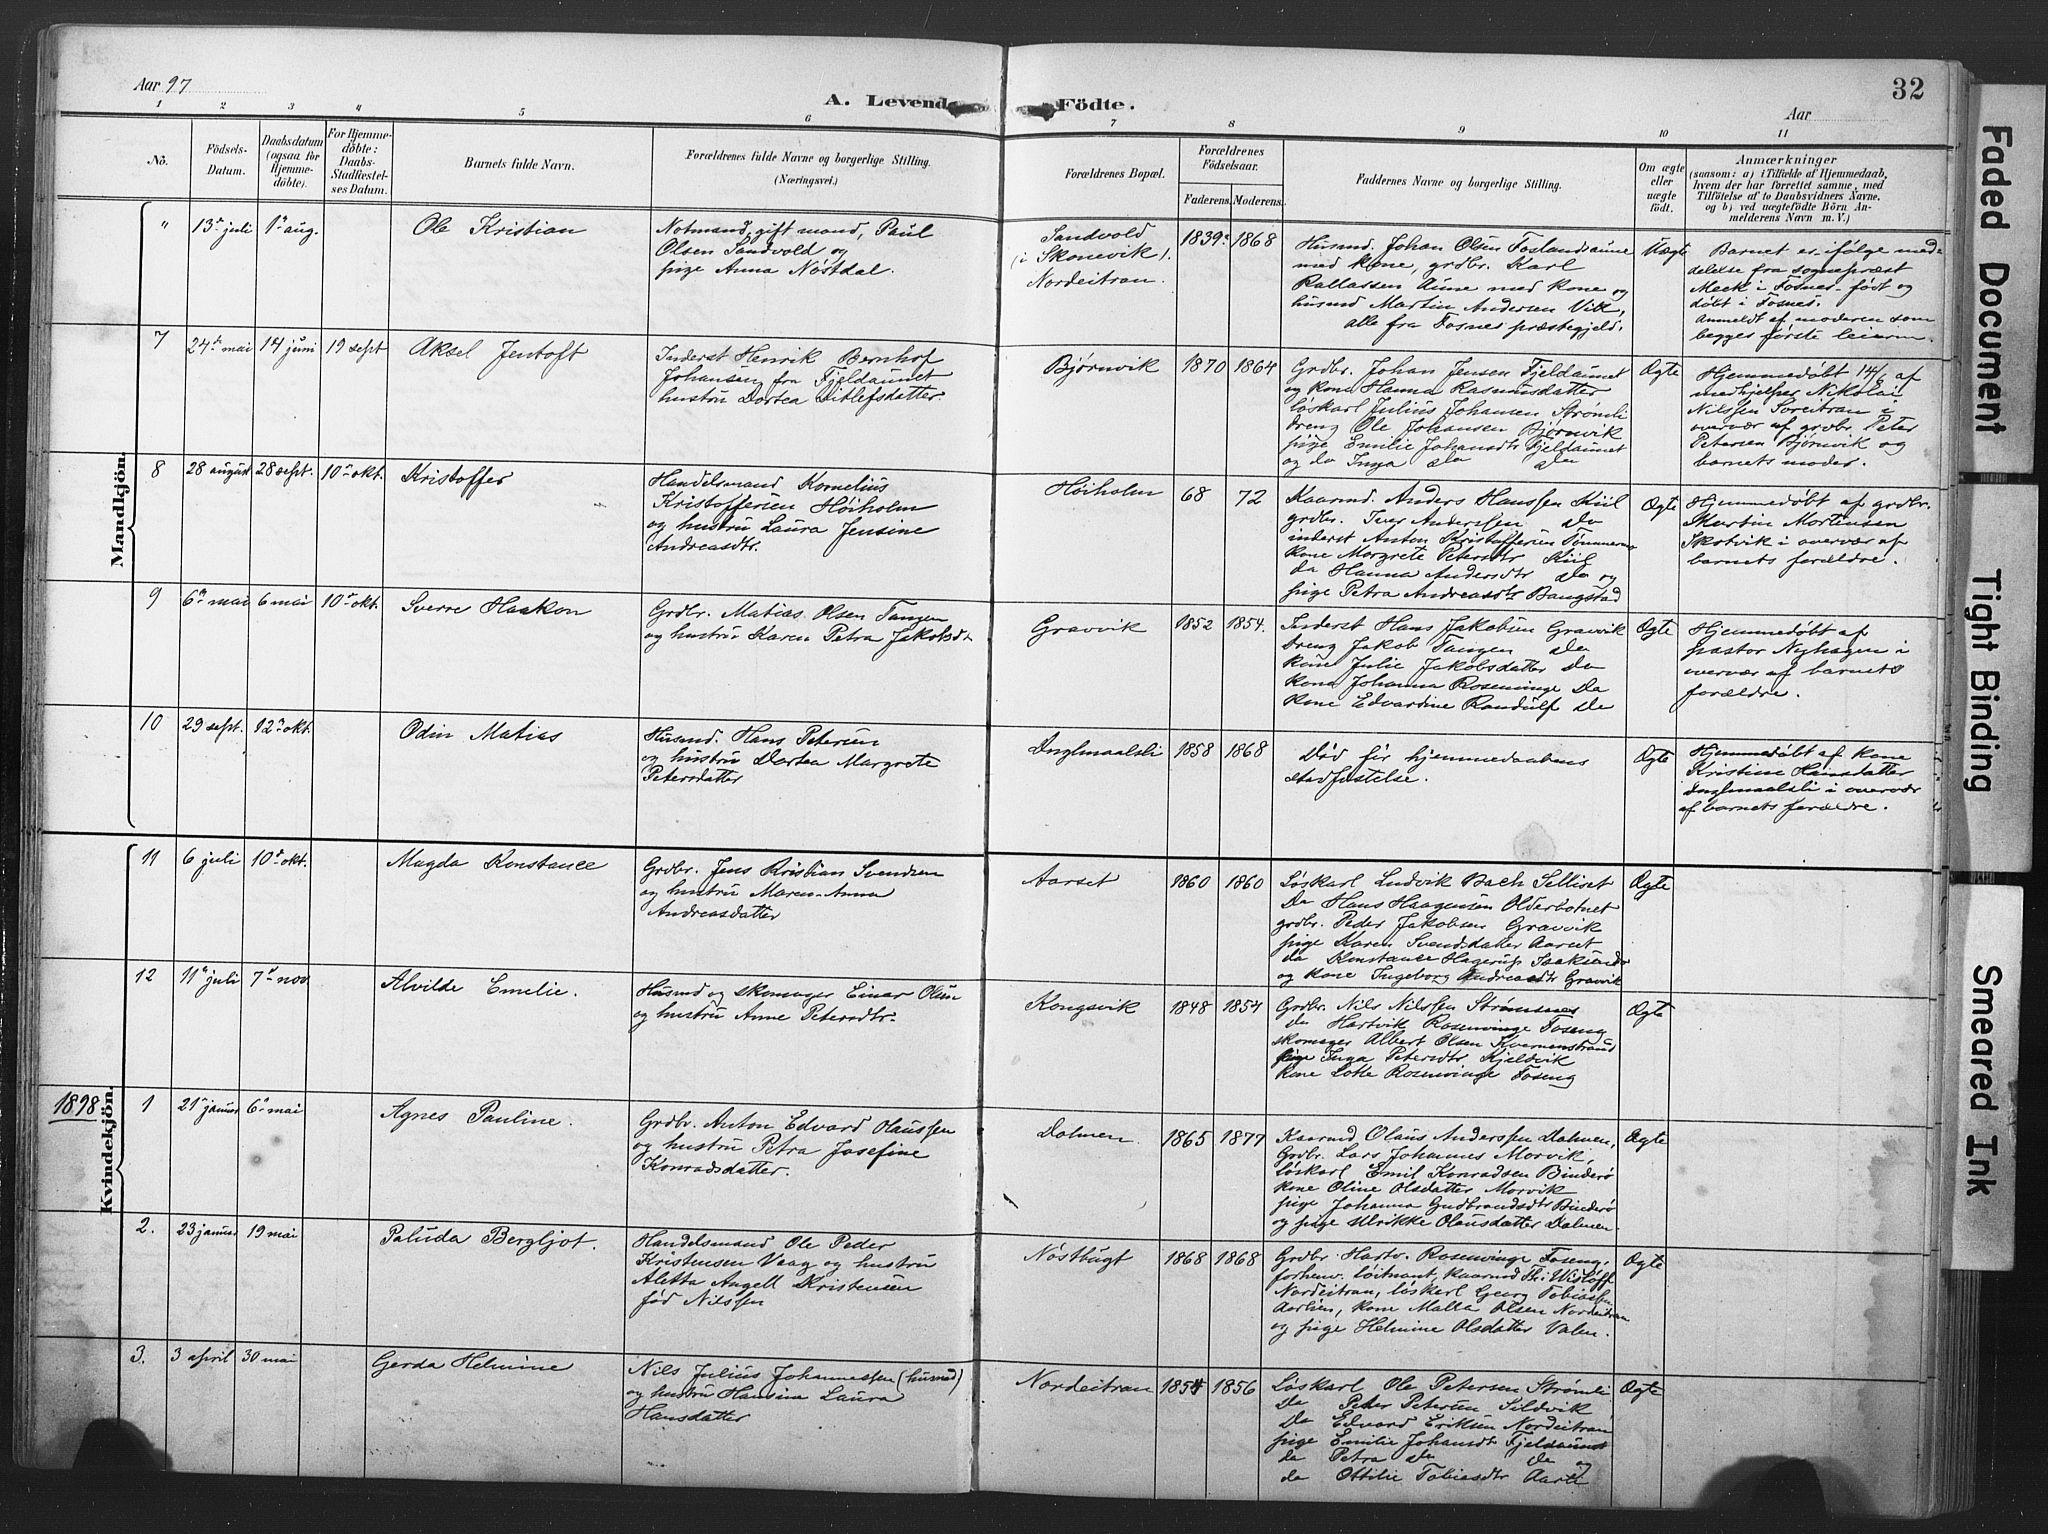 Aar 97
A. Levende
Födte.
32
Aar
1 2 3 4 5 6 7 8 9 10 11
No.
Födsels-
Datum.
Daabsdatum
(ogsaa for
Hjemme-
döbte).
For Hjemme-
döbte:
Daabs-
Stadfæstel-
ses Datum.
Barnets fulde Navn.
Forældrenes fulde Navne og borgerlige Stilling.
(Næringsvei.)
Forældrenes Bopæl.
Forældrenes
Födselsaar.
Faderens. Moderens.
Faddernes Navne og borgerlige Stilling.
Om ægte
eller
uægte
födt.
Anmærkninger
(saasom: a) i Tilfælde af Hjemmedaab,
hvem der har forrettet samme, med
Tilföielse af to Daabsvidners Navne,
og b) ved uægtefödte Börn An-
melderens Navn m. V.)
Mandkjön.
" 13de juli 1ste aug. Ole Kristian
Notmand, gift mand, Paul
Olsen Sandvold og
pige Anna Nöstdal.
Sandvold
(i Skonevik),
Nordeitran.
1839? 1868
Husmd. Johan Olsen Foslandsaune
med kone, grdbr. Karl
Rallassen Aune med kone og
husmd Martin Andersen Vik,
alle fra Fosnes præstegjeld.
Uægte
Barnet er ifølge med-
delelse fra sognepræst
Meck i Fosnes født og
døbt i Fosnes.
Anmeldt af moderen som
begges første leierm.
7 24de mai 14 juni 19 sept Aksel Jentoft
Inderst Henrik Bernhof
Johansen fra Fjeldaunet
hustru Dortea Ditlefsdatter.
Bjørnvik
1870 1864
Grdbr. Johan Jensen Fjeldaunet
og kone Hanna Rasmusdatter
løskarl Julius Johansen Strømli
dreng Ole Johansen Bjørnvik
pige Emilie Johansdtr Fjeldaunet
og do Inga do do
Ægte
Hjemmedøbt 14/6 af
medhjelper Nikolai
Nilssen Soreitran i
overvær af grdbr. Peter
Petersen Bjørnvik og
barnets moder.
8 28 august 28 sept. 10de okt. Kristoffer
Handelsmand Kornelius
Kristoffersen Høiholm
og hustru Laura Jensine
Andreasdtr.
Høiholm
68 72
Kaarmd. Anders Hanssen Kiil
grdbr. Iver Anderssen do
inderst Anton Kristoffersen
kone Margrete Petersdtr Kiil
do Hanna Andersdtr do og
pige Petra Andreasdtr Bangstad
Ægte
Hjemmedøbt af grdbr.
Martin Mortensen
Skotvik i overvær af
barnets forældre.
9 6te mai 6 mai 10de okt. Sverre Haakon
Grdbr. Matias Olsen Tangen
og hustru Karen Petra Jakobsd
Gravvik
1852 1854.
Inderst Hans Jakobsen Gravvik
Dreng Jakob Tangen do
kone Julie Jakobsdatter do
kone Johanna Rosenvinge do
kone Edvardine Randulf do
Ægte
Hjemmedøbt af
pastor Nyhagen i
overvær af barnets
forældre.
10 29 sept. 12te okt. Odin Matias
Husmd. Hans Petersen
og hustru Dortea Margrete
Petersdatter
Inglmaalsli
1858 1868
Død før hjemmedaabens
stadfæstelse.
Ægte
Hjemmedøbt af kone
Kristine Hansdatter
Inglmaalsli i overvær
af barnets forældre.
Kvindekjön.
11 6 juli 10de okt. Magda Konstance
Grdbr. Jens Kristian Svendsen
og hustru Maren Anna
Andreasdatter
Aarset
1860 1860
Løskarl Ludvik Bach Selliset
Do Hans Haagensen Olderbotnet
grdbr. Peder Jakobsen Gravvik
pige Karen Svendsdatter Aarset
do Konstance Hagerup
og kone Ingeborg Andreasdtr Gravvik
Ægte
12 11te juli 7de nov Alvilde Emelie.
Husmd og skomager Einar Olsen
og hustru Anne Petersdtr.
Kongsvik
1848 1854
Grdbr. Nils Nilssen Strømsnes
do Hartvik Rosenvinge Foseng
skomager Albert Olsen Kvernenstrand
pige Inga Petersdtr Kjeldvik
kone Lotte Rosenvinge Foseng
Ægte
1898
1 21de januar 6te mai Agnes Pauline.
Grdbr. Anton Edvard Olaussen
og hustru Petra Josefine
Konradsdatter.
Dolmen.
1865 1877
Kaarmd Olaus Anderssen Dolmen,
Grdbr. Lars Johannes Morvik,
løskarl Emil Konradsen Binderø
kone Oline Olsdatter Morvik
pige Johanna Gudbrandsdtr Binderø
og pige Ulrikke Olausdatter Dolmen.
Ægte
2. 23 januar 19 mai Paluda Bergljot.
Handelsmand Ole Peder
Kristensen Vaag og hustru
Aletta Angell Kristensen
fød Nilssen
Nøstbugt
1868 1868
Grdbr Hartv. Rosenvinge Foseng,
forhenv. løitnant, kaarmd Th. Wisløff
Nordeitran, løskarl Georg Tobiassen
Aarlien, kone Malla Olsen Nordeitran
og pige Helmine Olsdatter Valen.
Ægte
3. 3 april 30 mai Gerda Helmine
Nils Julius Johannessen (husmd)
og hustru Hansine Laura
Hansdatter
Nordeitran
1854 1856
Løskarl Ole Petersen Strømli
Do Peter Petersen Sildvik
Do Edvard Eriksen Nordeitran
pige Emilie Johansdtr Fjeldaunet
do Petra do do og
do Ottilie Tobiasdtr Aarli
Ægte
Faded Document
Tight Binding
Smeared Ink